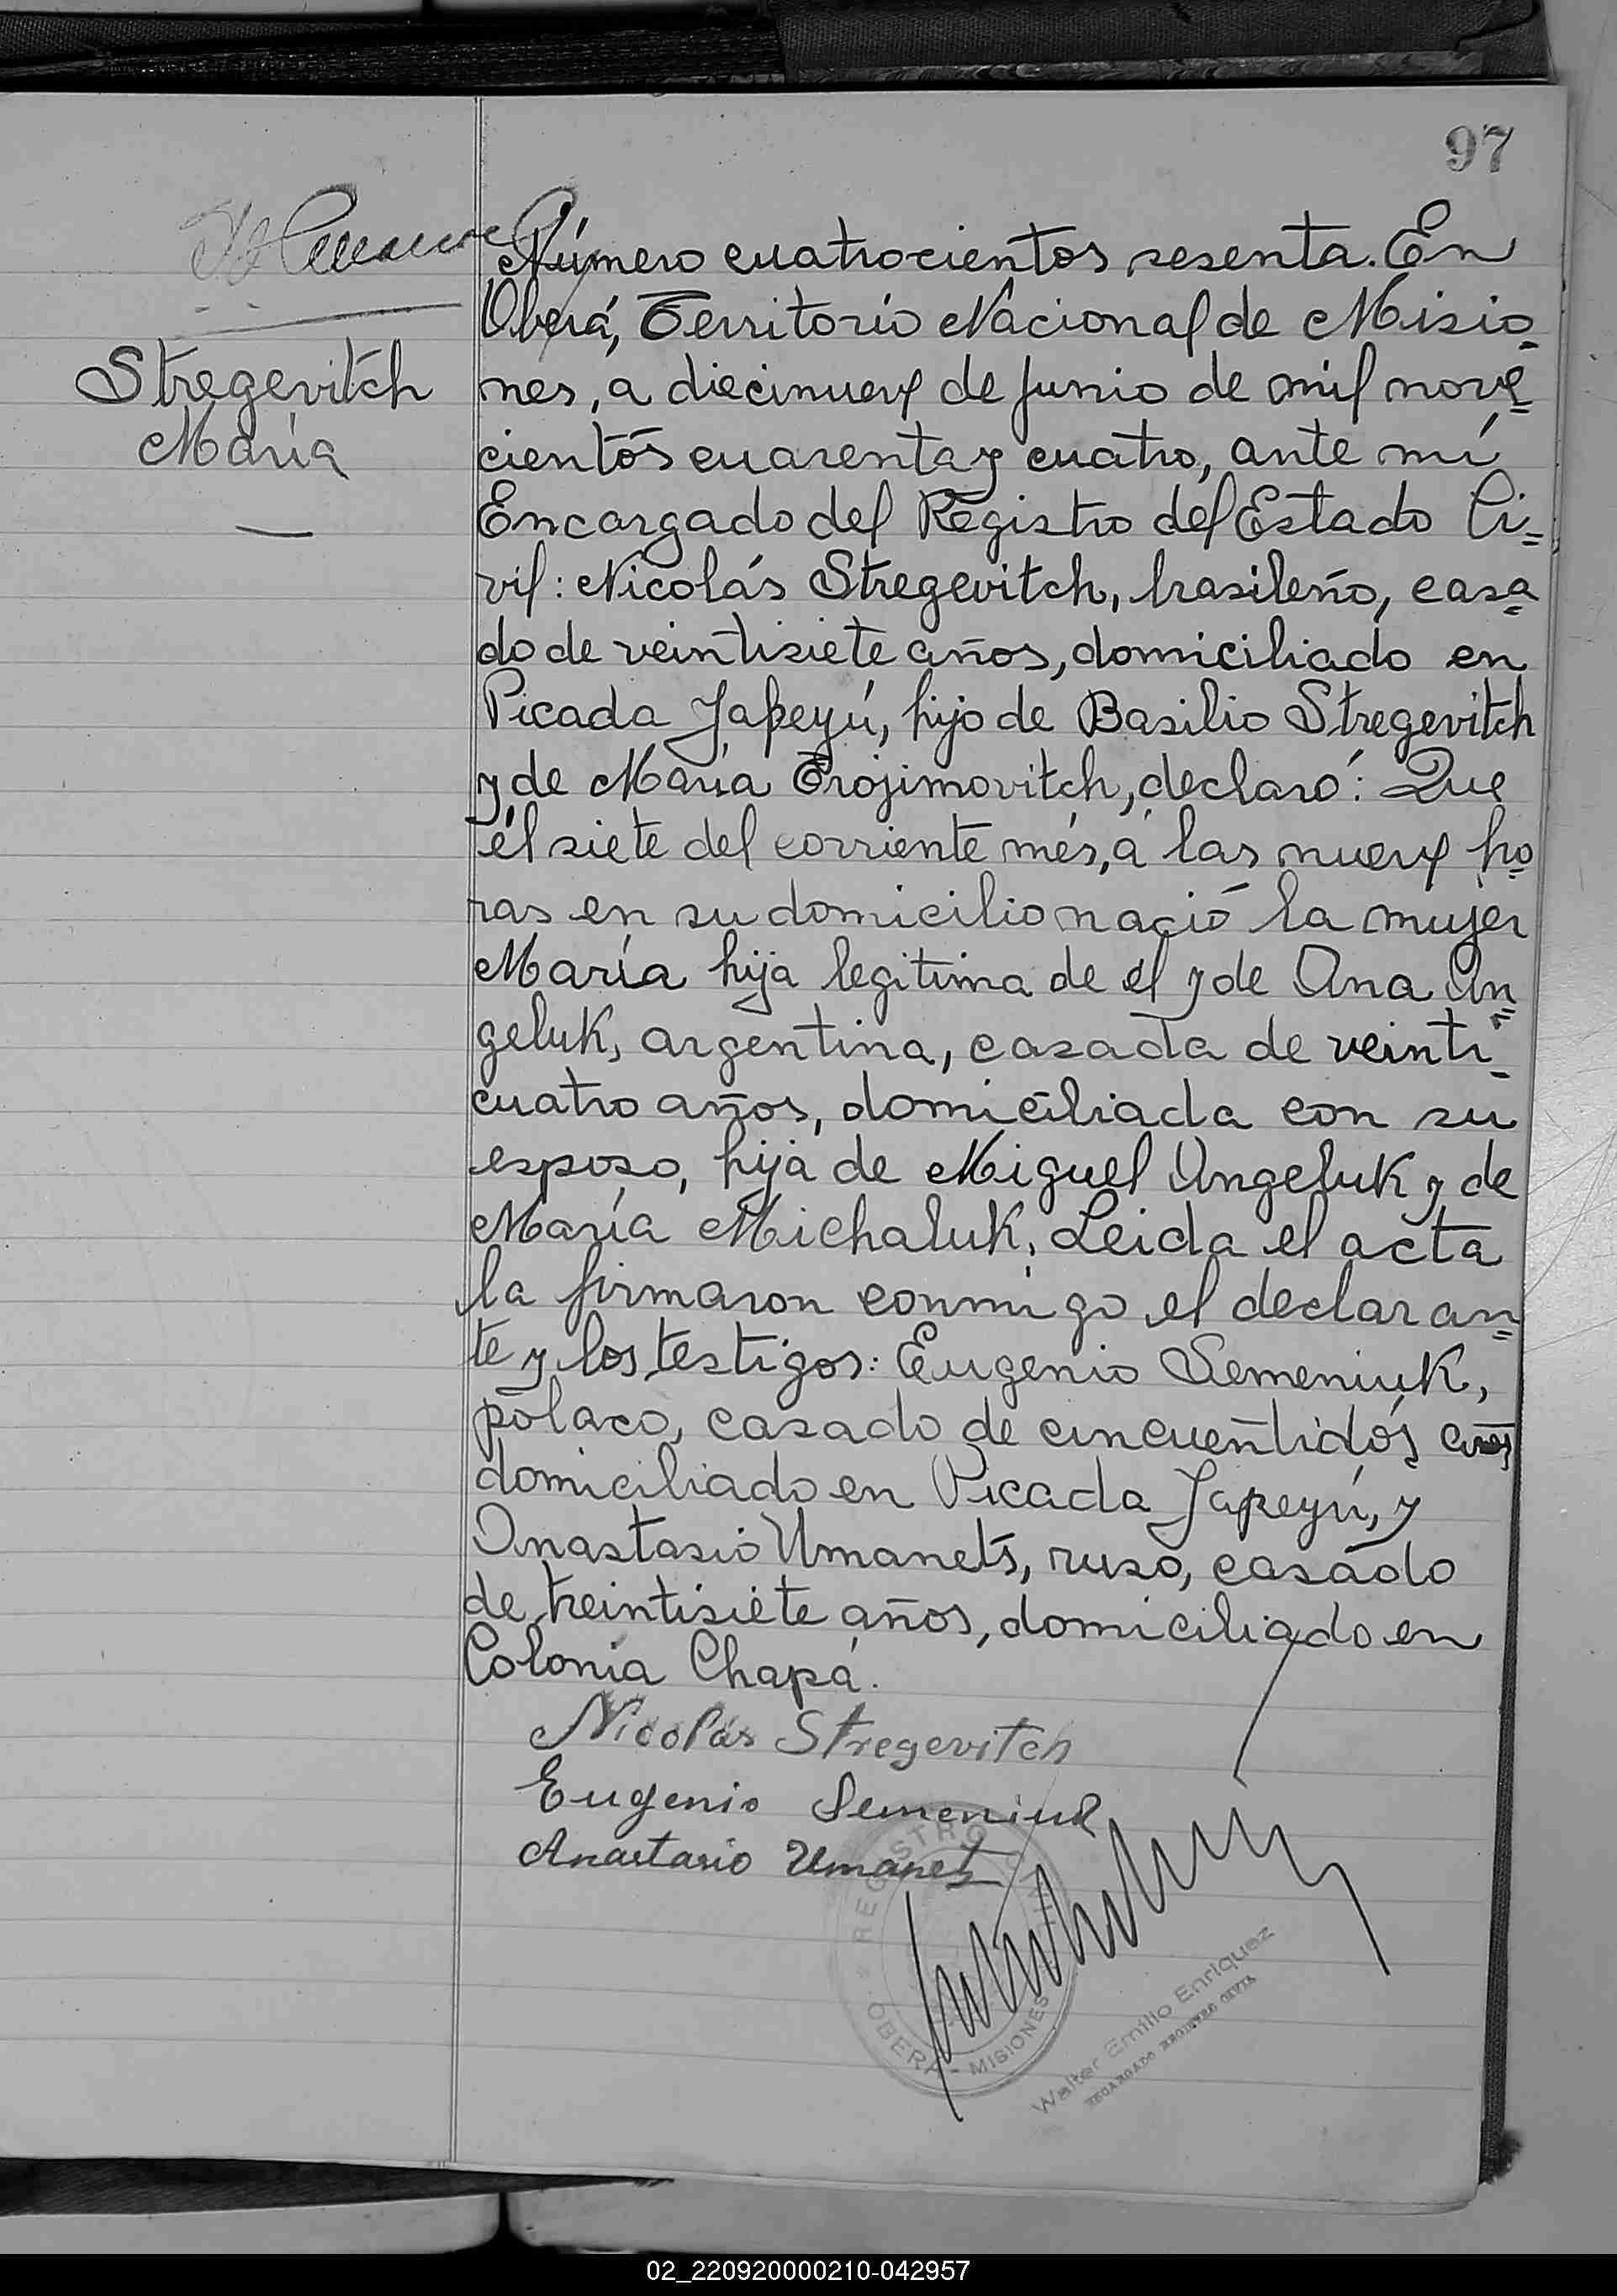 97
Número cuatrocientos sesenta. En
Oberá, Territorio Nacional de Misio-
Stregevitch
María
nes, a diecinueve de junio de mil nove=
cientos cuarenta y cuatro, ante mí
Encargado del Registro del Estado Ci=
vil: Nicolás Stregevitch, brasileño, casa=
do de veintisiete años, domiciliado en
Picada Japeyú, hijo de Basilio Stregevitch
y de María Trojimovitch, declaró: Que
él siete del corriente més, a las nueve ho
ras en su domicilio nació la mujer
María hija legitima de él y de Ana Un=
geluk, argentina, casada de veinti=
cuatro años, domiciliada con su
esposo, hija de Miguel Ungeluk y de
María Michaluk. Leida el acta
la firmaron conmigo el declaran=
te y los testigos: Eugenio Semeniuk,
polaco, casado de cincuentidós años
domiciliado en Picada Japeyú, y
Anastasio Umanets, ruso, casado
de treintisiete años, domiciliado en
Colonia Chapá.
Nicolás Stregevitch
Eugenio Semeniuk
Anastasio Umanets
REGISTRO
OBERÁ - MISIONES
Walter Emilio Enriquez
ENCARGADO REGISTRO CIVIL
02_220920000210-042957